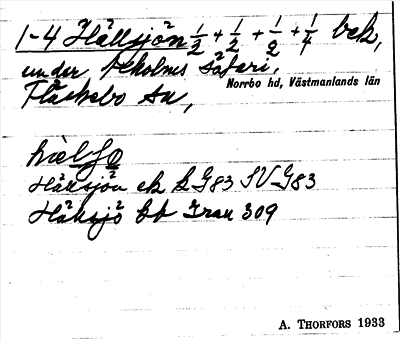 1-4 Hällsjön 1/2 + 1/2 + 1/2 + 1/4 bek,
under Ekholms säteri,
Norrbo hd, Västmanlands län
Fläckebo sn,
hèlʃo
Hällsjön ek SG83 SVG83
Hälsjö bb Iran 309
A. THORFORS 1933